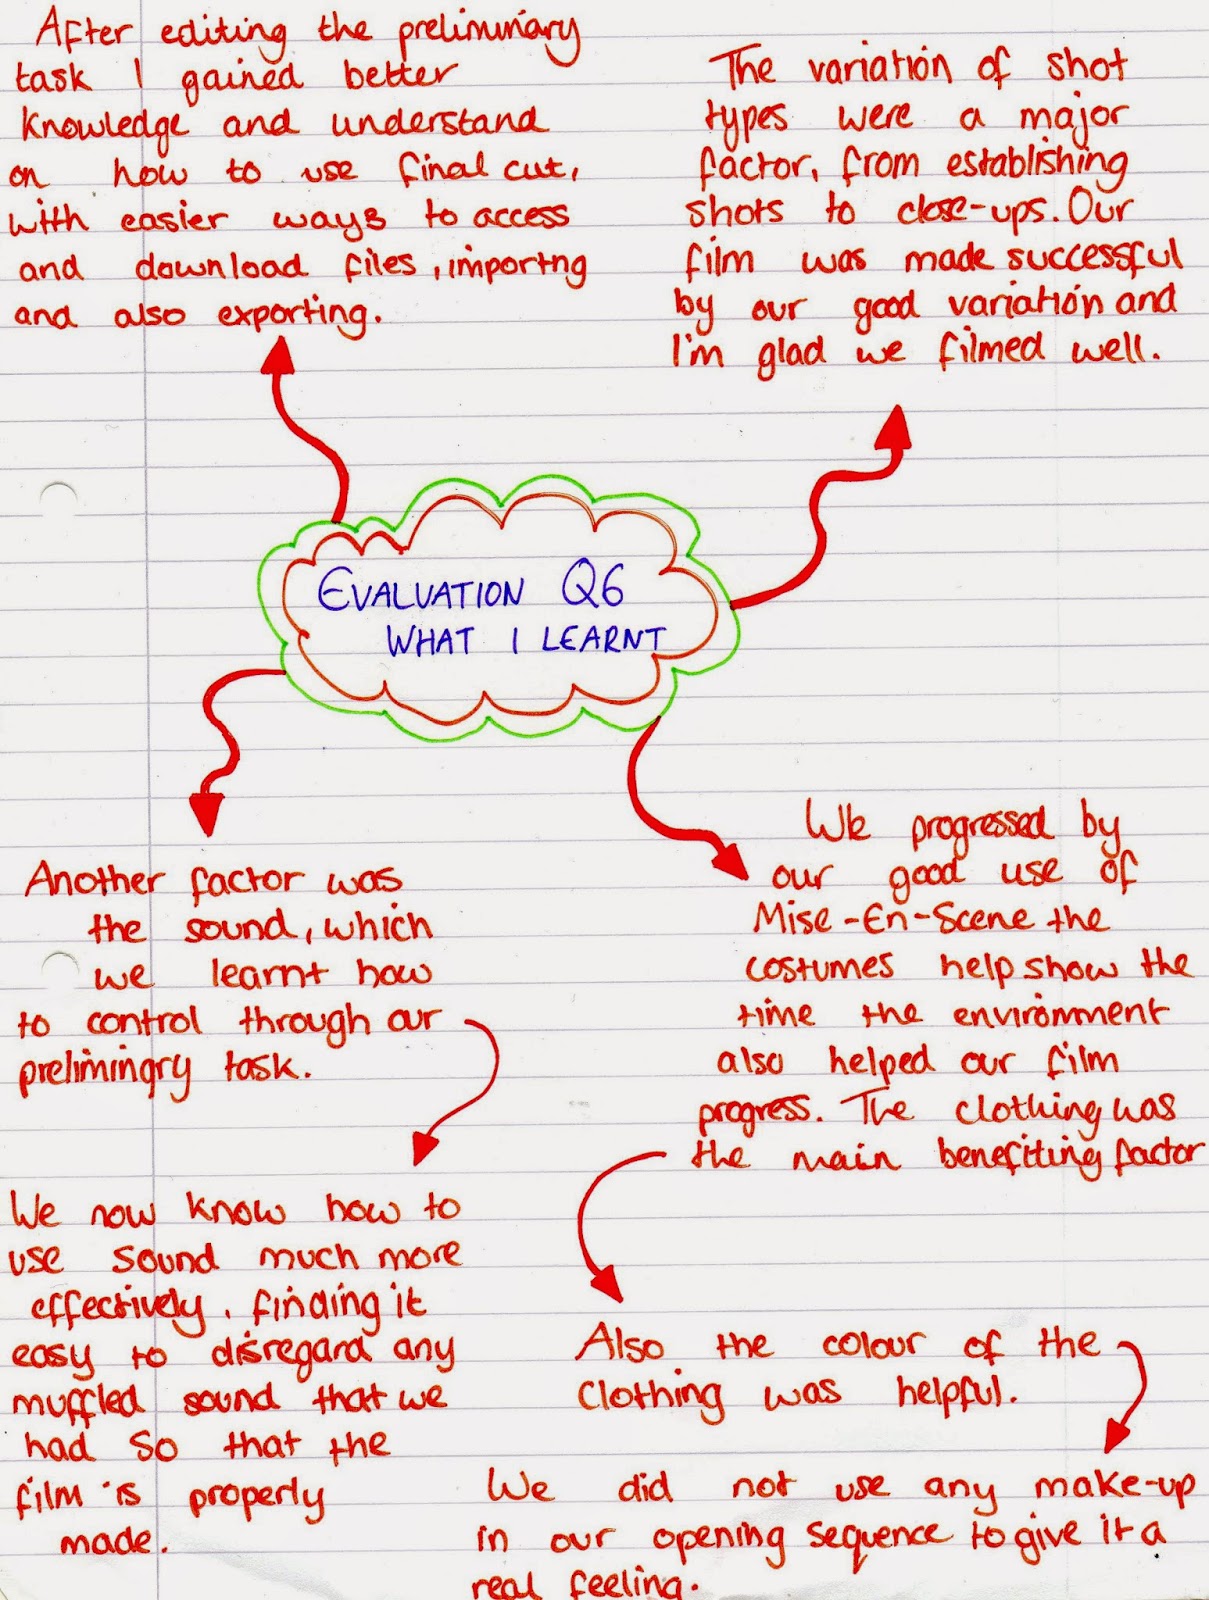 After editing the preliminary
task I gained better
knowledge and understand
on how to use final cut,
with easier ways to access
and download files, importng
and also exporting.
The variation of shot
types were a major
factor, from establishing
shots to close-ups. Our
film was made successful
by our good variation and
I'm glad we filmed well.
EVALUATION Q6
WHAT I LEARNT
Another factor was
the sound, which
we learnt how
to control through our
preliminary task.
We now know how to
use sound much more
effectively, finding it
easy to disregard any
muffled sound that we
had so that the
film is properly
made.
We progressed by
our good use of
Mise-En-Scene the
costumes help show the
time the environment
also helped our film
progress. The clothing was
the main benefiting factor
Also the colour of the
clothing was helpful.
We did not use any make-up
in our opening sequence to give it a
real feeling.